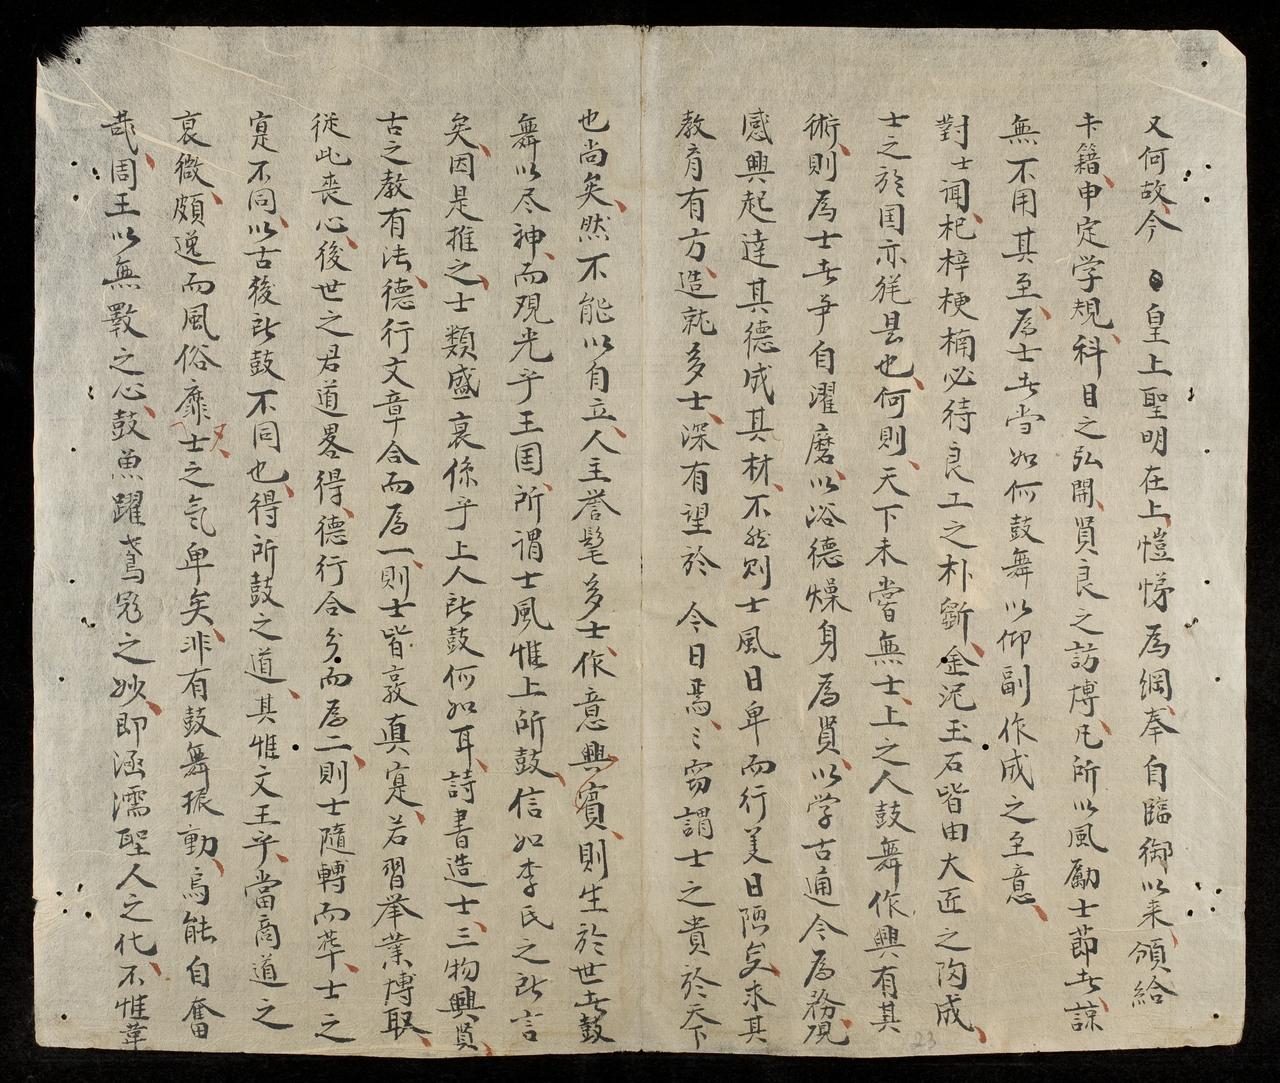 又何故今 皇上聖明在上愷悌為綱奉自臨御以来頒給
卡籍申定学規科目之弘開賢良之訪博凡所以風勵士節者諒
無不用其至為士者当如何鼓舞以仰副作成之至意
對士闻杞梓梗楠必待良工之朴斵金泥玉石皆由大匠之陶成
士之於国亦犹是也何則天下未嘗無士上之人鼓舞作興有其
術則為士者争自濯磨以浴德燥身為賢以学古通今為務观
感興起達其德成其材不然则士風日卑而行羙日陋矣求其
教育有方造就多士深有望於 今日焉〻窃謂士之貴於天下
也尚矣然不能以自立人主誉髦多士作意興賓則生於世者鼓
舞以尽神而观光乎王国所謂士風惟上所鼓信如李氏之所言
矣因是推之士類盛衰係乎上人所鼓何如耳詩書造士三物興賢
古之教有法德行文章合而為一則士皆敦真寔若習举業博取
從此丧心後世之君道畧得德行合分而為二則士隨轉而葬士之
寔不同以古後所鼓不同也得所鼓之道其惟文王乎當商道之
衰微頗逸而風俗靡士之氣卑矣非有鼓舞振動烏能自奮
哉周王以無斁之心鼓魚躍鳶飛之妙即涵濡聖人之化不惟葦